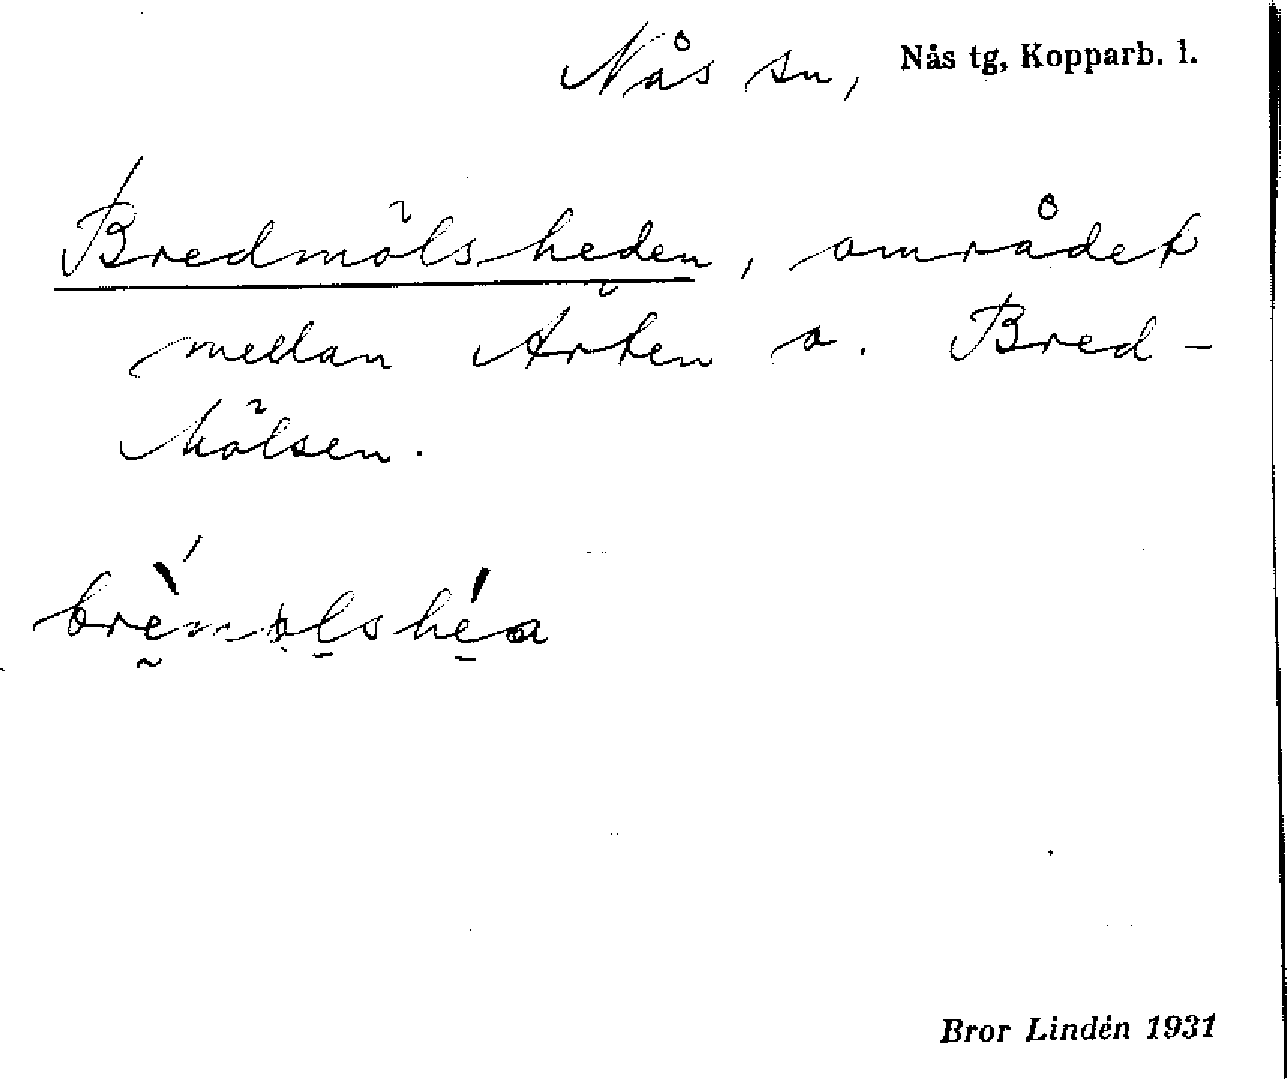 Nås sn, Nås tg, Kopparb. l.
Bredmölsheden, området
mellan Ärten o. Bred-
Mölsen.
Bror Lindén 1931